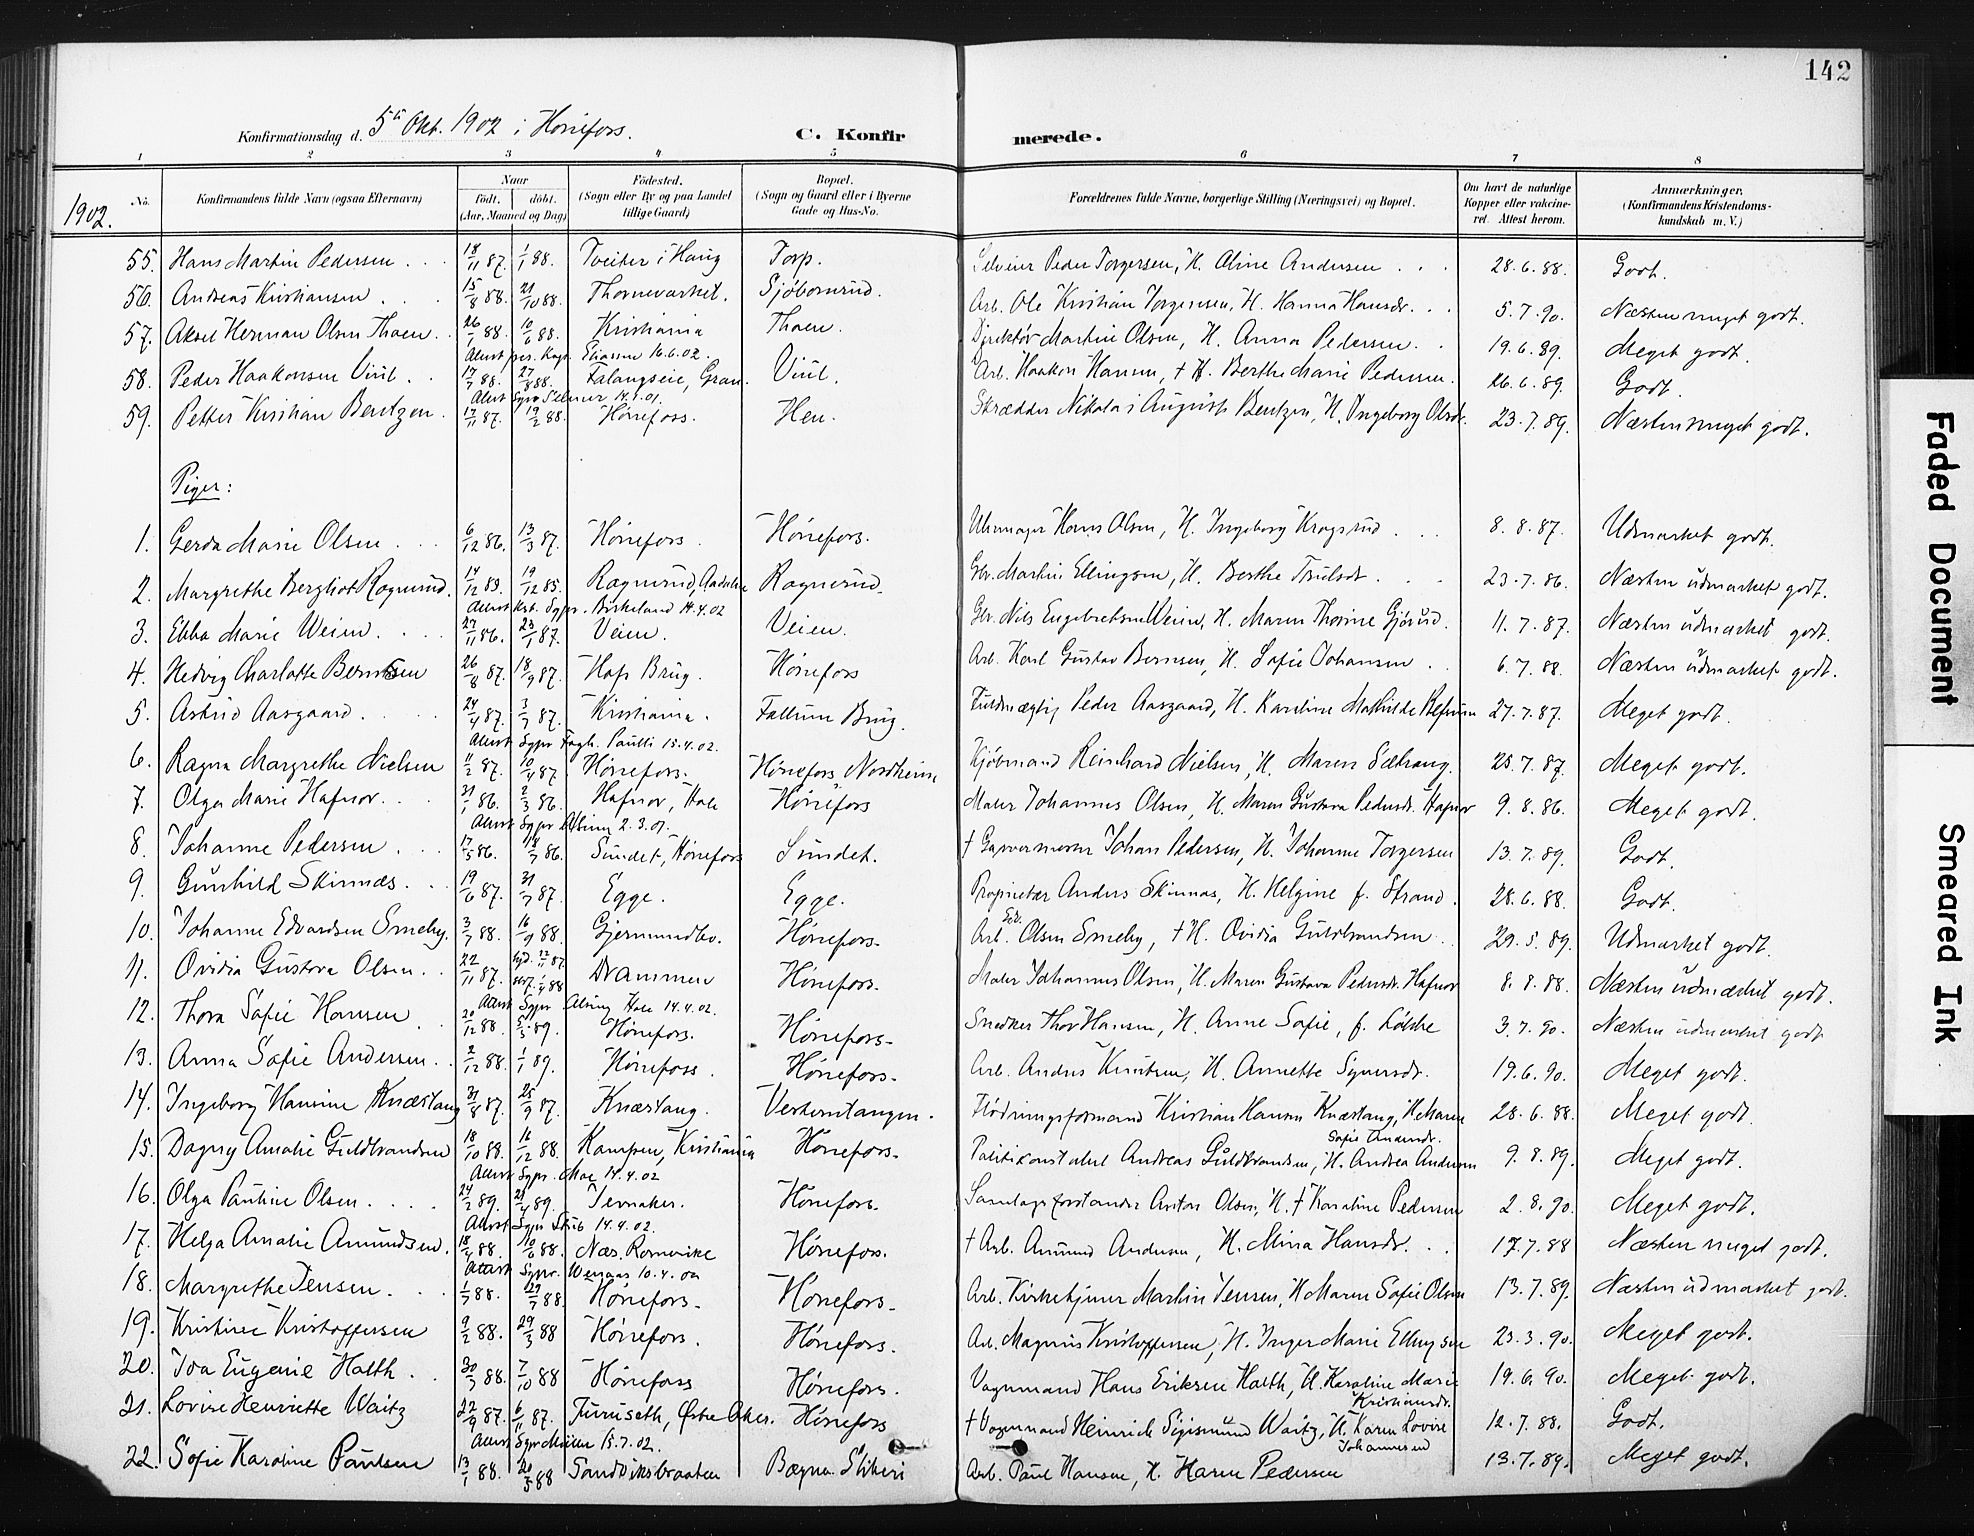 142
Konfirmationsdag d. 5te Okt. 1902 i Hønefos.
C. Konfirmerede.
1 2 3 4 5 6 7 8
1902.
No. Konfirmandens fulde Navn (ogsaa Efternavn) Naar født. døbt. (Aar, Maaned og Dag) Fødested. (Sogn eller By og paa Landet tillige Gaard) Bopæl. (Sogn og Gaard eller i Byerne Gade og Hus-No. Forældrenes fulde Navne, borgerlige Stilling (Næringsvei) og Bopæl. Om havt de naturlige Kopper eller vakcineret. Attest herom. Anmærkninger, (Konfirmandens Kristendomskundskab m. V.)
55. Hans Martin Pedersen 18/11 87. 1/1 88. Tveiter i Haug Torp. Selveier Peder Torgersen, H. Oline Andersen 28.6.88. Godt.
56. Andreas Kristiansen 15/8 88. 21/10 88. Thornevarket. Sjöbornrud. Arb. Ole Kristian Jørgensen, H. Hanna Hansdr. 5.7.90. Næsten meget godt.
57. Aksel Herman Olsen Thoen 26/1 88. 10/6 88. Kristiania Thoen. Direktör Martin Olsen, H. Anna Pedersen. 19.6.89. Meget godt.
Attest pers. Kap. Eliassen 16.6.02.
58. Peder Haakonsen Viul 17/7 88. 27/8 88. Falangseie, Gran. Viul. Arb. Haakon Hansen, † H. Berthe Marie Pedersen. 26.6.89. Godt.
Attest Sgpr 14.4.01.
59. Petter Kristian Bentzen 17/11 87. 19/2 88. Hønefoss. Hen. Skrædder Nikolai August Bentzen, H. Ingeborg Olsdr. 23.7.89. Næsten meget godt.
Piger:
1. Gerda Marie Olsen 6/12 86. 13/3 87. Hønefors. Hønefors. Uhrmager Hans Olsen, H. Ingeborg Kragsrud 8.8.87. Udmærket godt.
2. Margrethe Bergliot Ragnerud. 14/12 83. 19/12 85. Ragnerud, Aadalen Ragnerud. Gbr. Martin Ellingsen, H. Berthe Trulsdr. 23.7.86. Næsten udmærket godt.
Attest Kst. Sgpr. Birkeland 14.4.02
3. Ebba Marie Weien 27/11 86. 23/1 87. Veien. Veien. Gbr. Nils Engebretsen Weien, H. Maren Thorine Gjørud. 11.7.87. Næsten udmærket godt.
4. Hedvig Charlotte Berntsen 26/8 87. 18/9 87. Hofs Brug. Hønefors Arb. Karl Gustav Bernsen, H. Sofie Johansen 6.7.88. Næsten udmærket godt.
5. Astrid Aasgaard 24/4 87. 3/7 87. Kristiania. Follum Brug. Fuldmægtig Peder Aasgaard, H. Karoline Mathilde 27.7.87. Meget godt.
Attest Sgpr Fagh. Paulli 15.4.02.
6. Ragna Margrethe Nielsen 11/2 87. 10/4 87. Hønefors. Hønefors Nordheim Kjøbmand Reinhard Nielsen, H. Maren Sætrang. 25.7.87. Meget godt.
7. Olga Marie Hafnor. 31/1 86. 2/3 86. Hafnor, Hole Hønefors Maler Johannes Olsen, H. Maren Gustava Pedersdr. Hafnor 9.8.86. Meget godt.
Attest Sgpr Alsing 2.3.01.
8. Johanne Pedersen 17/5 86. 18/7 86. Sundet, Hønefors Sundet. † Garvermester Johan Pedersen, H. Johanne Torgersen 13.7.89. Godt.
9. Gunhild Skinnæs. 19/6 87. 31/7 87. Egge. Egge. Proprietær Anders Skinnæs, H. Helgine f. Strand. 28.6.88. Godt.
10. Johanne Edvardsen Smeby. 3/7 88. 16/9 88. Gjermundbo. Hønefors. Arb. Edv. Olsen Smeby, † H. Ovidia Guldbrandsen 29.5.89. Udmærket godt.
11. Ovidia Gustava Olsen 22/11 87. Drammen Hønefors. Maler Johannes Olsen, H. Maren Gustava Pedersdr. Hafnor 8.8.88. Næsten udmærket godt.
Attest Sgpr Alsing Hole 14.4.02.
12. Thora Sofie Hansen 20/12 88. 5/5 89. Hønefors. Hønefors. Snedker Thor Hansen, H. Anne Sofie, f. Lökke 3.7.90. Næsten udmærket godt
13. Anna Sofie Andersen 2/12 88. 1/1 89. Hønefoss. Hønefors. Arb. Anders Knutsen, H. Annette Syversdr. 19.6.90. Meget godt.
14. Ingeborg Hansine Knæstang 31/8 87. 25/9 87. Knæstang. Verkenstangen. Flødningsformand Kristian Hansen Knæstang, H. Maren Sofie Amundsdr. 28.6.88. Meget godt.
15. Dagny Amalie Guldbrandsen 18/10 88. 16/12 88. Kampen, Kristiania Hønefors. Politikonstabel Andreas Guldbrandsen, H. Andrea Andersen 9.8.89. Meget godt.
Attest Sgpr. Moe 14.4.02
16. Olga Pauline Olsen 24/2 89. 21/4 89. Jevnaker. Hønefors. Samlagsforstander Anton Olsen, H. † Karoline Pedersen 2.8.90. Meget godt.
Attest Sgpr Skrib 14.4.02.
17. Helga Amalie Amundsen. 18/4 88. 10/6 88. Næs. Romerike Hønefors. † Arb. Amund Andersen, H. Mina Hansdr. 17.7.88 Næsten meget godt.
Attest Sgpr. Wenaas 10.4.02
18. Margrethe Jensen 1/7 88. 29/7 88. Hønefors. Hønefors. Arb. Kirketjener Martin Jensen, H. Maren Sofie Olsen 13.7.89. Næsten udmærket godt.
19. Kristine Kristoffersen 9/2 88. 29/3 88 Hønefors. Hønefors. Arb. Magnus Kristoffersen, H. Inger Marie Ellingsen 23.3.90. Meget godt.
20. Eugenie Halth 30/7 88. 7/10 88 Hønefoss Hønefors. Vognmand Hans Eriksen Halth, H. Karoline Marie Kristiansdr. 19.6.90. Meget godt.
21. Lovise Henriette Waitz 22/9 87. 6/11 87. Furuseth, Østre Aker. Hønefors † Vognmand Heinrich Sigismund Waitz, H. Karen Lovise Johannesen 12.7.88. Godt.
Attest Sgpr Müller 15.7.02.
22. Sofie Karoline Paulsen 13/1 88. 20/5 88 Sandviksbraaten Bægna Sliberi Arb. Paul Hansen, H. Karen Pedersen 13.7.89. Meget godt.
Faded Document
Smeared Ink